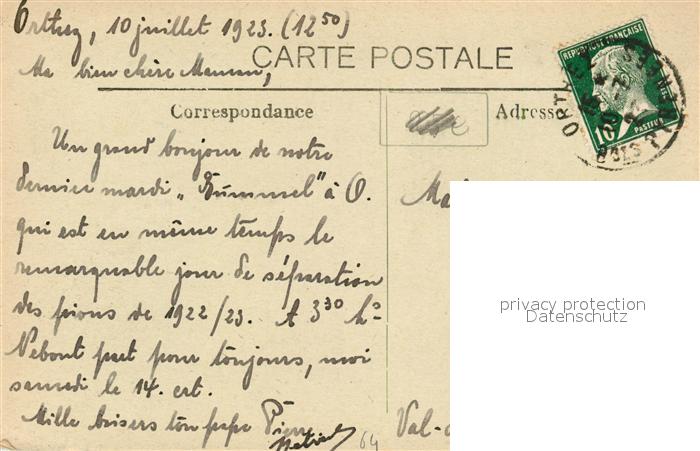 Orthez, 10 juillet 1923. (12⁵⁰)
Ma bien chère Maman,
CARTE POSTALE
Correspondance
Adresse
REPUBLIQUE FRANÇAISE
10
PASTEUR
ORTHEZ
Un grand bonjour de notre
dernier mardi „Bummel" à O.
qui est en même temps le
remarquable jour de séparation
des pions de 1922/23. A 3³⁰ h
Nebout part pour toujours, moi
samedi le 14. crt.
Mille baisers ton Pierre
64
Val-
privacy protection
Datenschutz